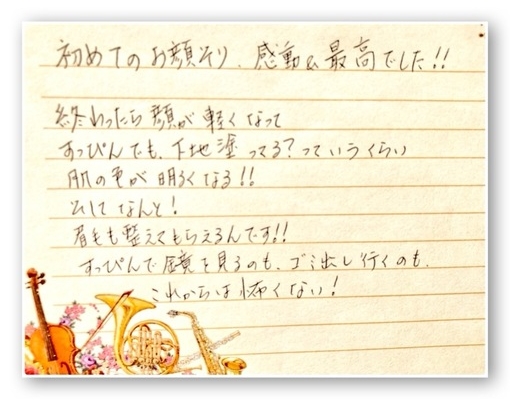 初めてのお顔そり、感動&最高でした!!
終わったら顔が軽くなって
すっぴんでも、下地塗ってる?っていうくらい
肌の色が明るくなる!!
そしてなんと!
眉毛も整えてもらえるんです!!
すっぴんで鏡を見るのも、ゴミ出し行くのも、
これからは怖くない!